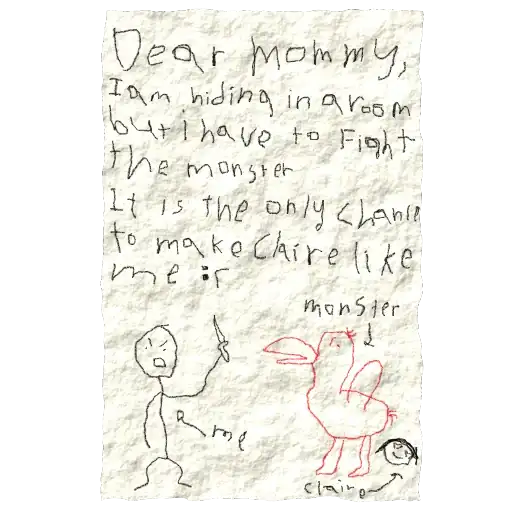 Dear mommy,
I am hiding in a room
but i have to Fight
the monster
It is the only chance
to make Claire like
me :r
monster
me
claire